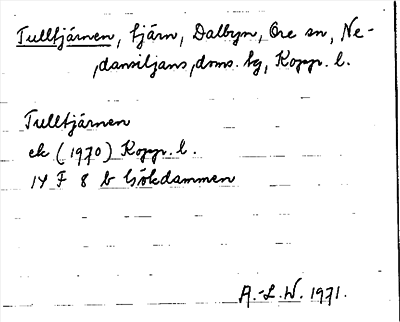 Tulltjärnen, tjärn, Dalbyn, Ore sn, Ne-
dansiljans doms. tg, Kopp. l.
Tulltjärnen
ek (1970) Kopp. l.
14 F 8 b Gökdammen
A.-L.W. 1971.